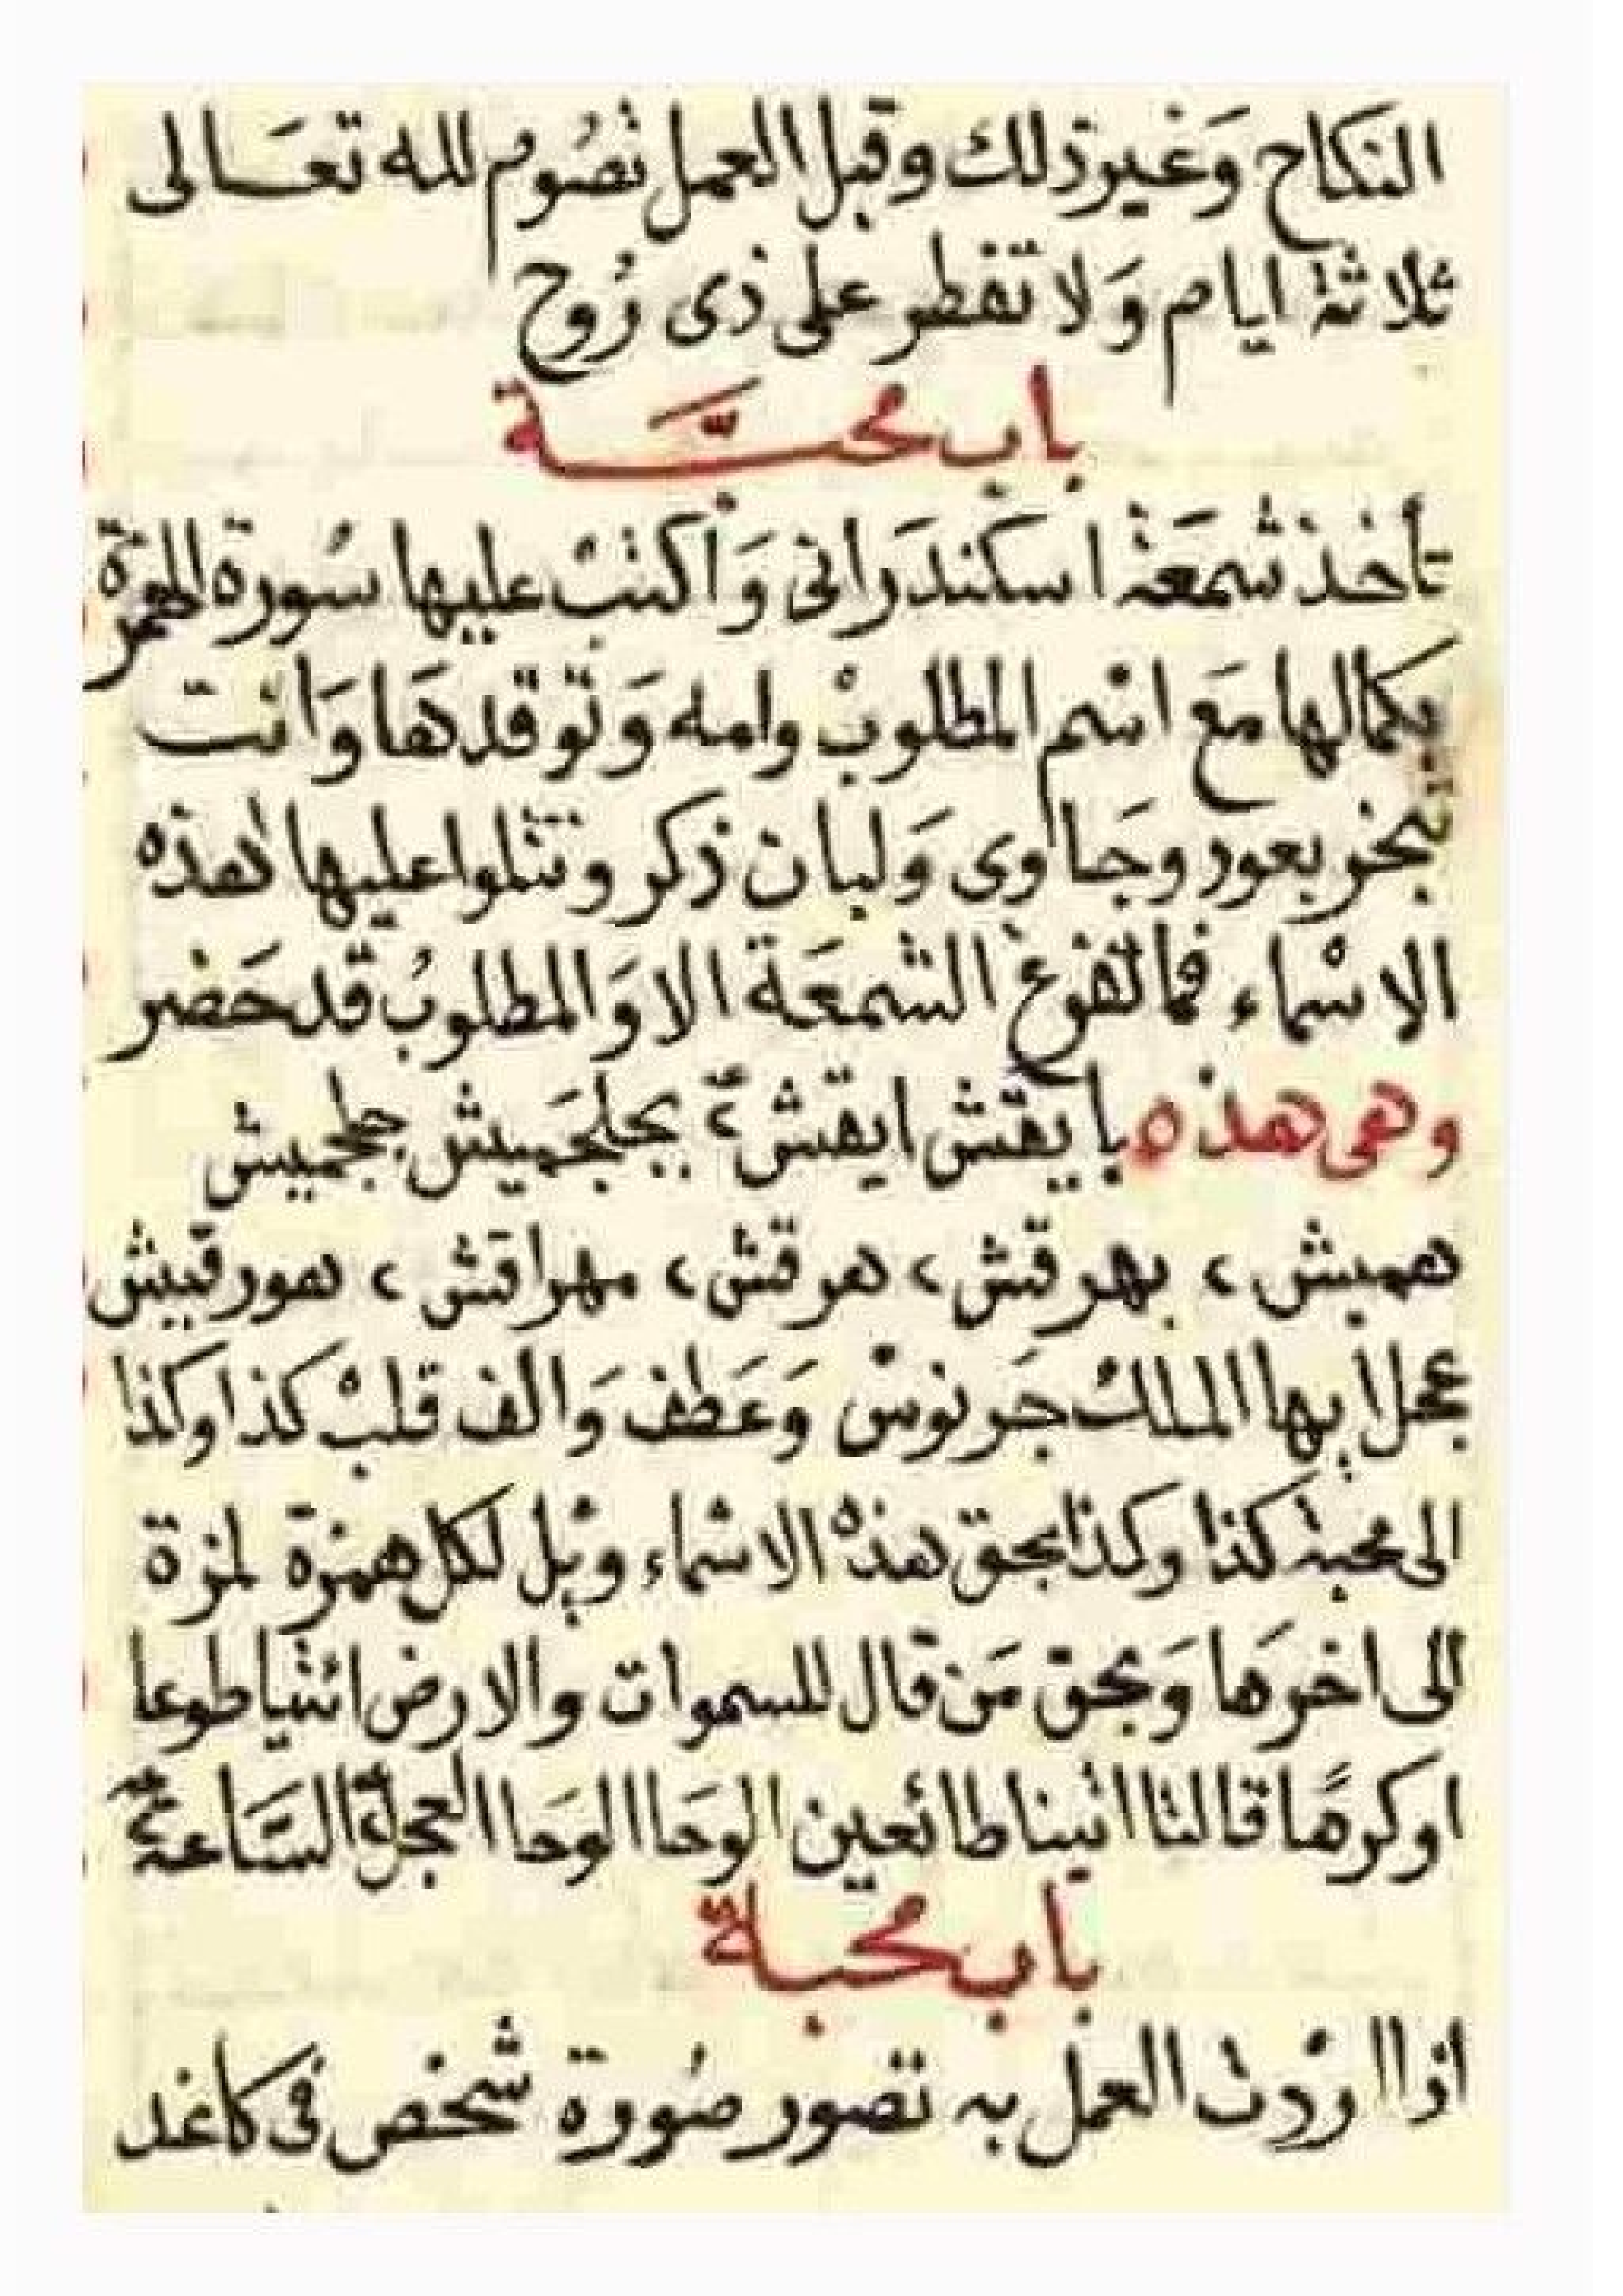 النكاح وَغير ذلك وقبل العمل تصُوم لله تعَالى
ثلاثة ايام وَلا تفطر على ذى رُوح
باب محبَّة
تأخذ شمعَة اسكندَرانى وَاكتبْ عليها سُورة الهمزة
بكمالها مَع اسْم المطلوبْ وامه وَتوقدهَا وَانت
تبخر بعود وجَاوى وَلبان ذكر وتتلوا عليها هذه
الاسْماء فما تفرغ الشمعَة الا وَالمطلوبُ قد حَضر
وهى هذه بايقش ايقش ٢ بجلجَميش جلجميش
هميش ، بهرقش ، هرقش ، مهراقش ، هورقيش
عجل ايها الملك جَرنوسْ وَعَطف وَالف قلبْ كذا وكذا
الى محبة كذا وكذا بحق هذهْ الاسْماء ويْل لكل همزة لمزة
الى اخرَها وَبحق مَن قال للسموات والارض ائتيا طوعا
اوكرهًا قالتا اتينا طائعين الوحَا الوحَا العجل٢ السَّاعة٢
باب محبة
اذا ارْدت العمل به تصور صُورة شخص فى كاغد